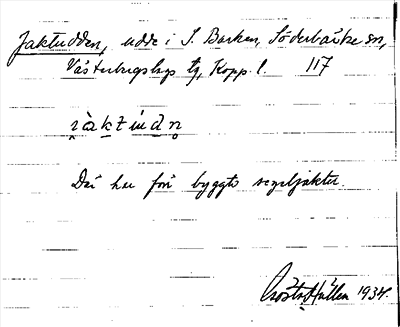 Jaktudden, udde i S. Barken, Söderbärke sn,
Västerbergslags tg, Kopp. l. 117
Där har förr byggts segeljakter.
1934.